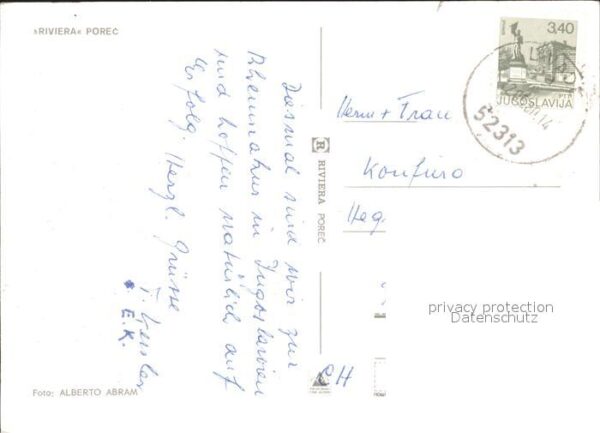 »RIVIERA« POREČ
Diesmal sind wir zur
Rheumakur in Jugoslawien
und hoffen natürlich auf
Erfolg. Herzl. Grüsse
E.K.
RIVIERA POREČ
3,40
JUGOSLAVIJA
52313
Herrn + Frau
Heg
privacy protection
Datenschutz
CH
Foto: ALBERTO ABRAM